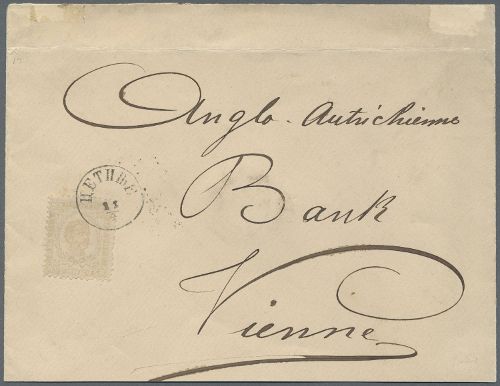 Anglo-Autrichienne
Bank
Vienne
ЦЕТИЊЕ